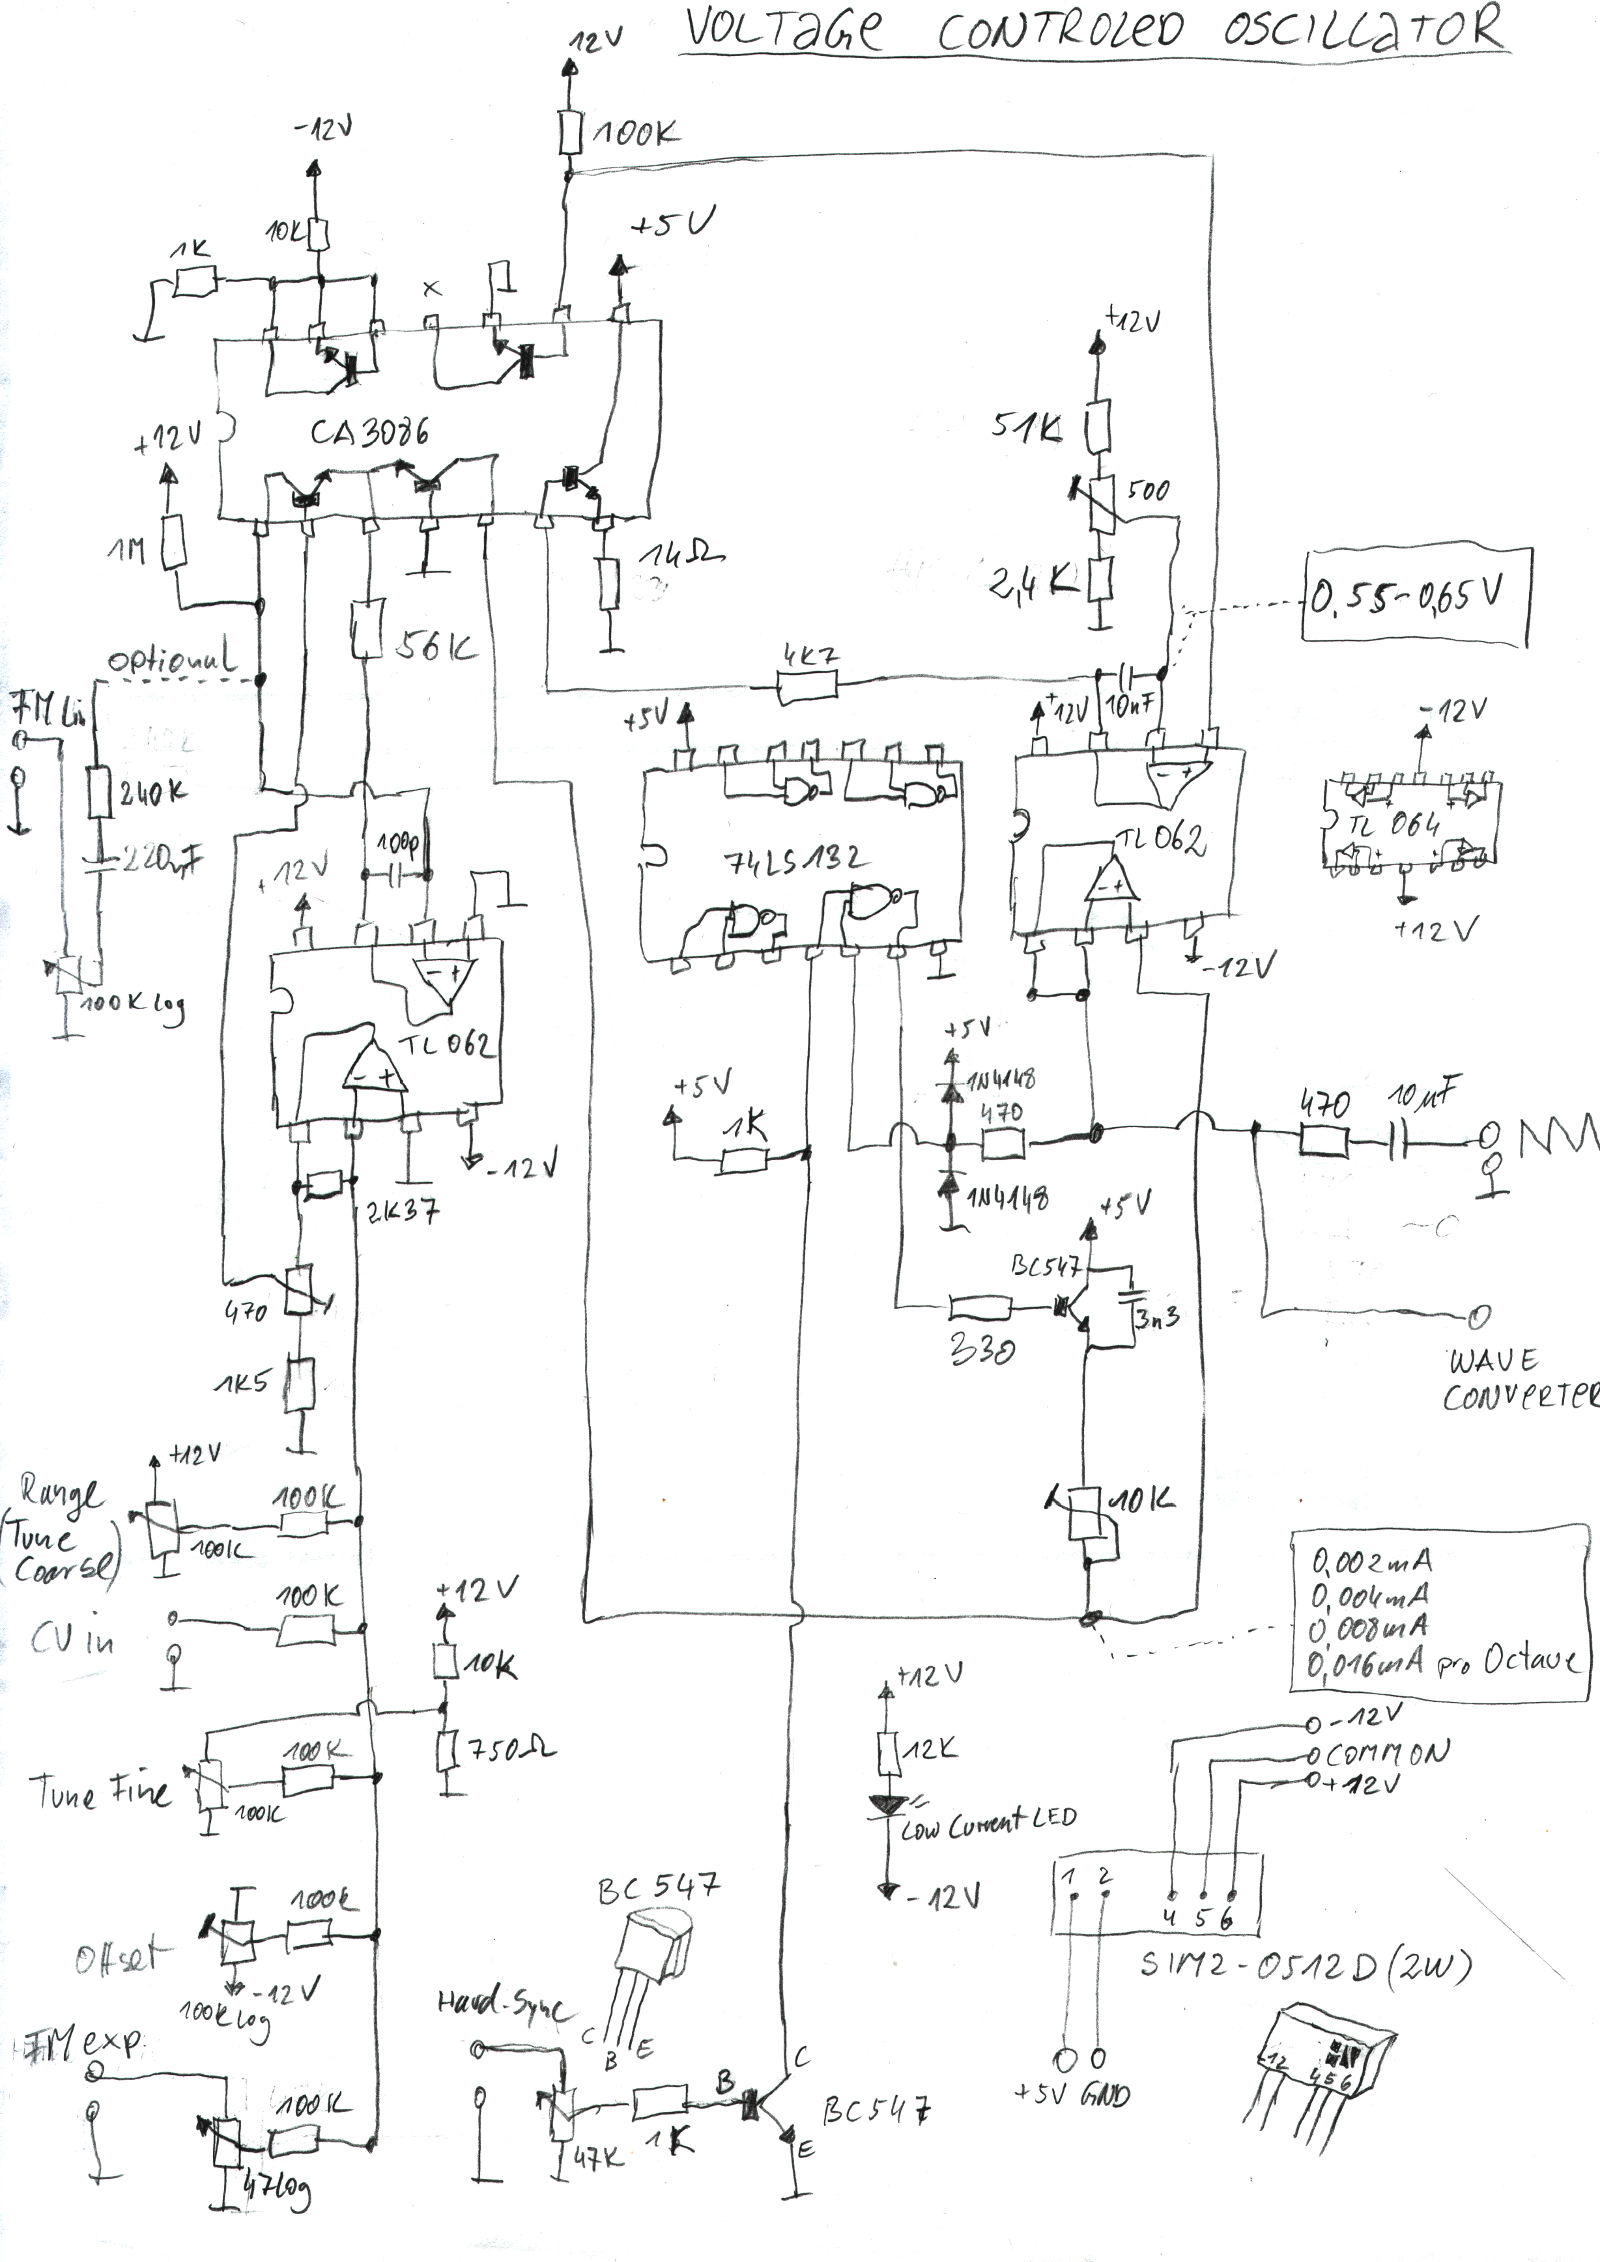 VOLTAGE CONTROLED OSCILLATOR
12V
100K
-12V
10K
1K
+5V
x
CA3086
+12V
1M
14Ω
56K
optional
FM Lin
240K
220nF
100K log
+12V
51K
500
2,4K
0,55-0,65V
4K7
10nF
+5V
+12V
74LS132
TL062
-12V
-12V
TL 064
+12V
100p
+12V
TL062
-12V
2K37
470
1K5
+5V
1K
+5V
1N4148
470
1N4148
470
10µF
+5V
BC547
3n3
330
WAVE
CONVERTER
10K
Range
(Tune
Coarse)
+12V
100K
100K
CV in
100K
+12V
10K
750Ω
Tune Fine
100K
100K
Offset
100K
-12V
100K log
FM exp.
100K
47log
0,002mA
0,004mA
0,008mA
0,016mA pro Octave
+12V
12K
Low Current LED
-12V
-12V
COMMON
+12V
1 2
4 5 6
SIM2-0512D (2W)
+5V GND
12
456
BC547
C
B
E
Hard-Sync
47K
1K
B
C
E
BC547